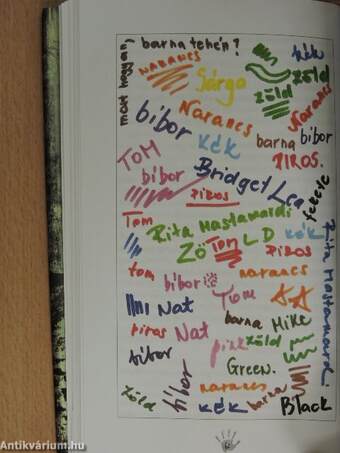 most hogyan,
barna tehén?
NARANCS
kék
Sárga
zöld
zöld
Narancs
bíbor
Narancs
kék
barna
bíbor
TOM
PIROS.
bíbor
Bridget Lea
PIROS
fekete
Tom
Rita Mastamardi
ZÖLD
Tom
kék
PIROS
Rita Mastamardi
tom
bíbor
narancs
Nat
Tom
piros
Nat
barna
Mike
bíbor
pink
zöld
GREEN.
zöld
bíbor
narancs
kék
barna
Black
Antikvárium.hu